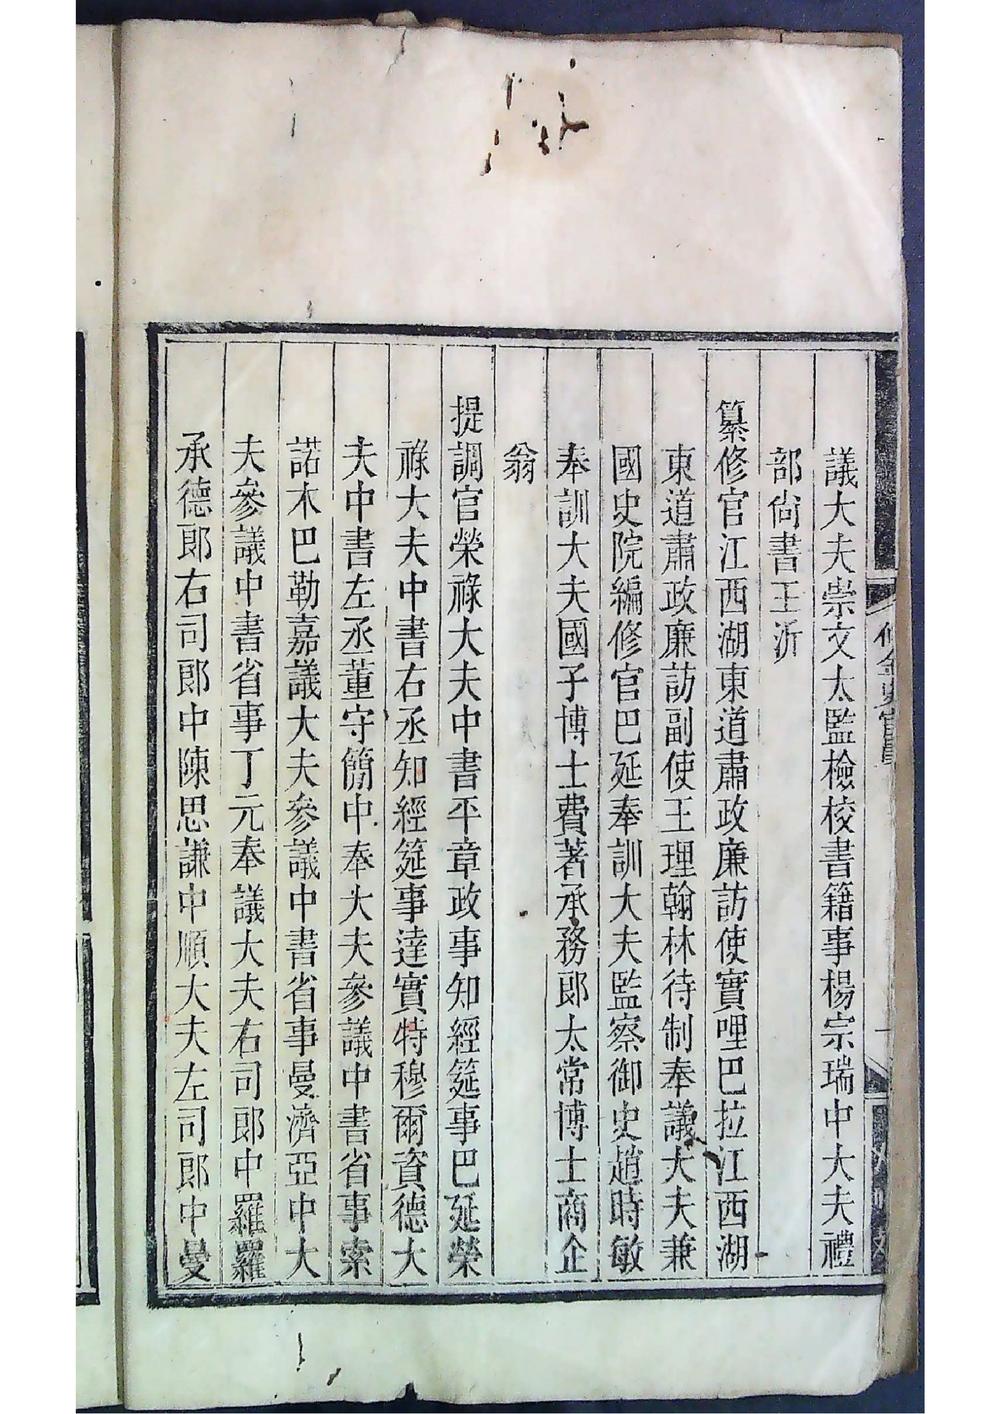 議大夫崇文太監檢校書籍事楊宗瑞中大夫禮
部尙書王沂
纂修官江西湖東道肅政廉訪使實哩巴拉江西湖
東道肅政廉訪副使王理翰林待制奉議大夫兼
國史院編修官巴延奉訓大夫監察御史趙時敏
奉訓大夫國子博士費著承務郎太常博士商企
翁
提調官榮祿大夫中書平章政事知經筵事巴延榮
祿大夫中書右丞知經筵事達實特穆爾資德大
夫中書左丞董守簡中奉大夫參議中書省事索
諾木巴勒嘉議大夫參議中書省事曼濟亞中大
夫參議中書省事丁元奉議大夫右司郎中羅羅
承德郎右司郎中陳思謙中順大夫左司郎中曼
修金史官員